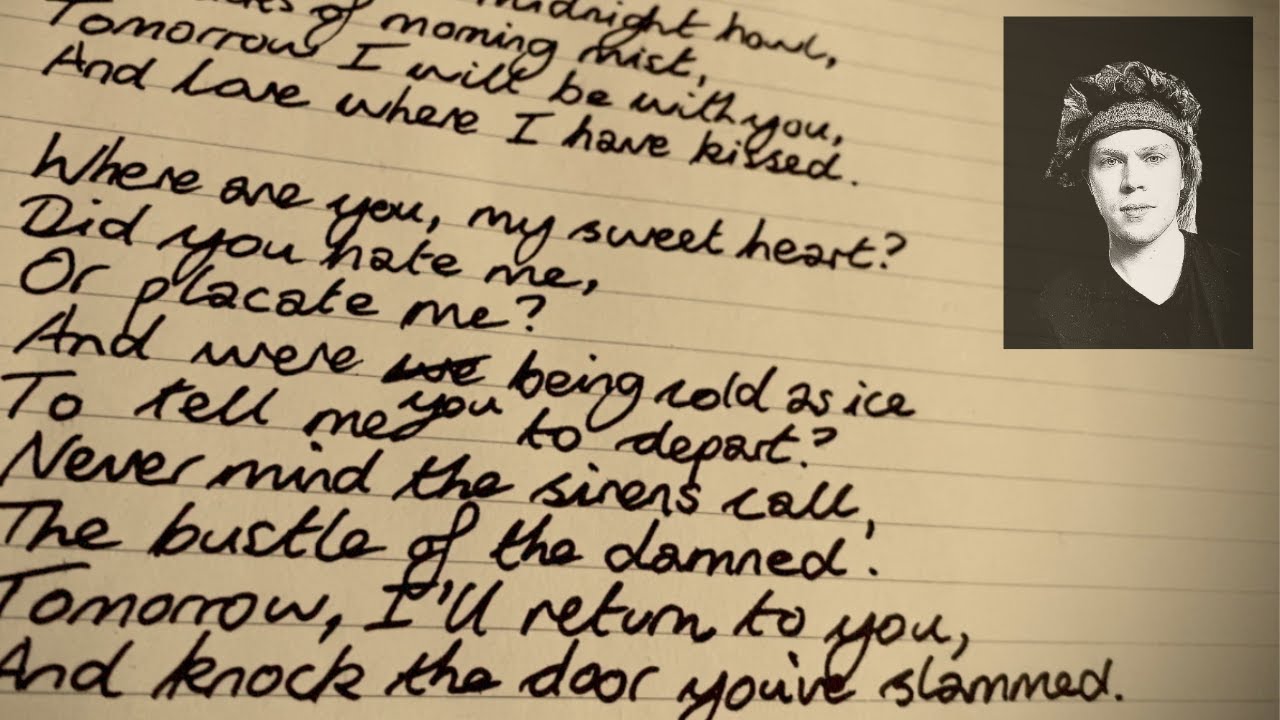 midnight howl,
of morning mist,
Tomorrow I will be with you,
And love where I have kissed.
Where are you, my sweet heart?
Did you hate me,
Or placate me?
And were we being cold as ice
To tell me you to depart?
Never mind the sirens call,
The bustle of the damned.
Tomorrow, I'll return to you,
And knock the door you've slammed.